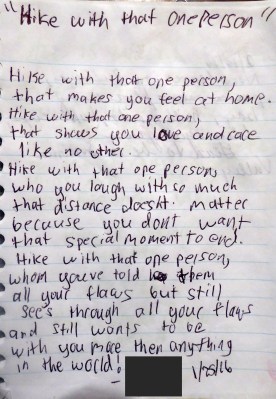 "Hike with that one person"
Hike with that one person,
that makes you feel at home.
Hike with that one person,
that shows you love and care
like no other.
Hike with that one person,
who you laugh with so much
that distance doesnt. matter
because you dont want
that special moment to end.
Hike with that one person,
whom youve told them
all your flaws but still
see's through all your flaws
and still wants to be
with you more then anything
in the world!
1/25/16